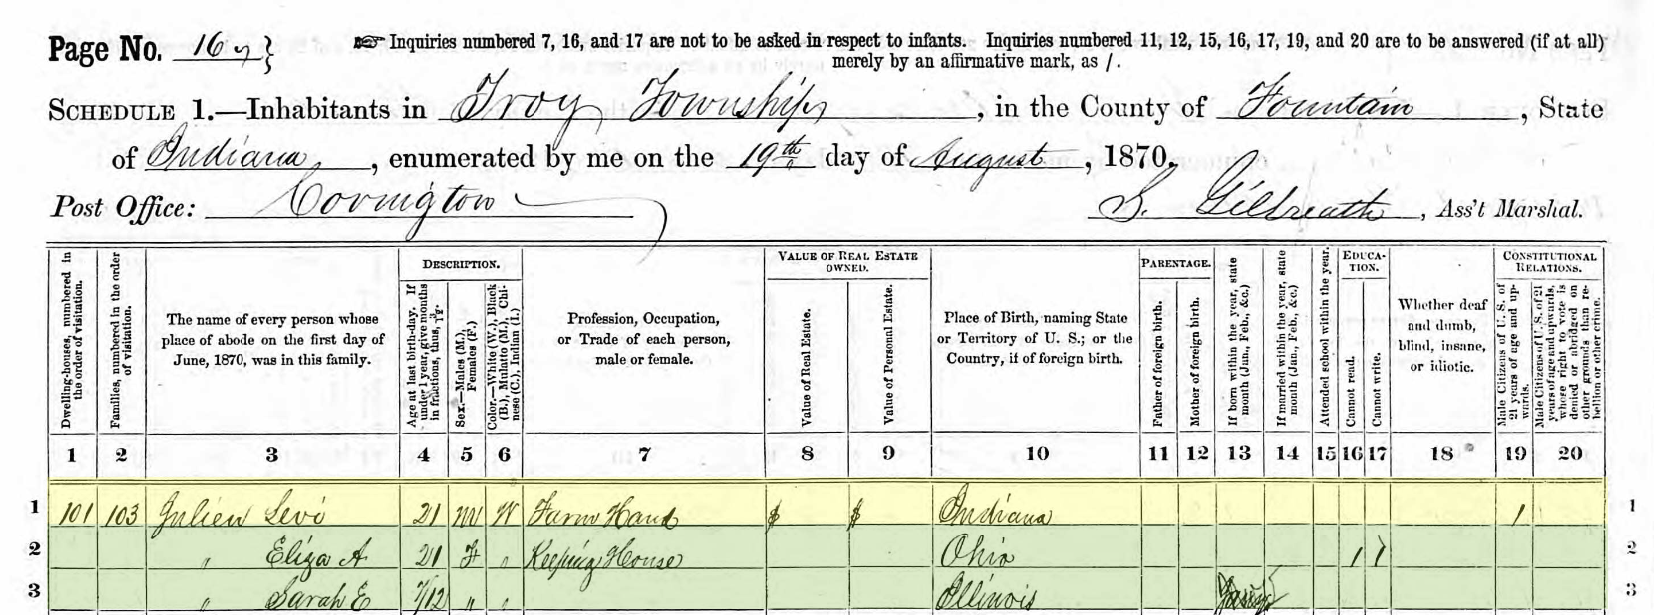 Page No. 16 }
☞ Inquiries numbered 7, 16, and 17 are not to be asked in respect to infants. Inquiries numbered 11, 12, 15, 16, 17, 19, and 20 are to be answered (if at all)
merely by an affirmative mark, as /.
SCHEDULE 1.—Inhabitants in Troy Township, in the County of Fountain, State
of Indiana, enumerated by me on the 19th day of August, 1870.
Post Office: Covington
S. Gilbreath, Ass't Marshal.
Dwelling-houses, numbered in the order of visitation.
Families, numbered in the order of visitation.
The name of every person whose
place of abode on the first day of
June, 1870, was in this family.
DESCRIPTION.
Age at last birth-day. If under 1 year, give months in fractions, thus, 3/12.
Sex.—Males (M.), Females (F.)
Color.—White (W.), Black (B.), Mulatto (M.), Chinese (C.), Indian (I.)
Profession, Occupation,
or Trade of each person,
male or female.
VALUE OF REAL ESTATE
OWNED.
Value of Real Estate.
Value of Personal Estate.
Place of Birth, naming State
or Territory of U. S.; or the
Country, if of foreign birth.
PARENTAGE.
Father of foreign birth.
Mother of foreign birth.
If born within the year, state month (Jan., Feb., &c.)
If married within the year, state month (Jan., Feb., &c.)
Attended school within the year.
EDUCA-
TION.
Cannot read.
Cannot write.
Whether deaf
and dumb,
blind, insane,
or idiotic.
CONSTITUTIONAL
RELATIONS.
Male Citizens of U. S. of 21 years of age and upwards.
Male Citizens of U. S. of 21 years of age and upwards, whose right to vote is denied or abridged on other grounds than rebellion or other crime.
1 2 3 4 5 6 7 8 9 10 11 12 13 14 15 16 17 18 19 20
1 101 103 Julien Levi 21 M W Farm Hand $ $ Indiana 1 1
2 " Eliza A 21 F " Keeping House Ohio / / 2
3 " Sarah E 7/12 " " Illinois 3